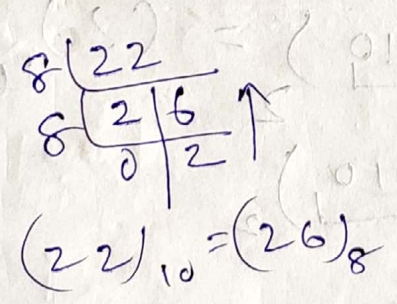 8 22
8 2 6 ↑
0 2
(22)₁₀ = (26)₈